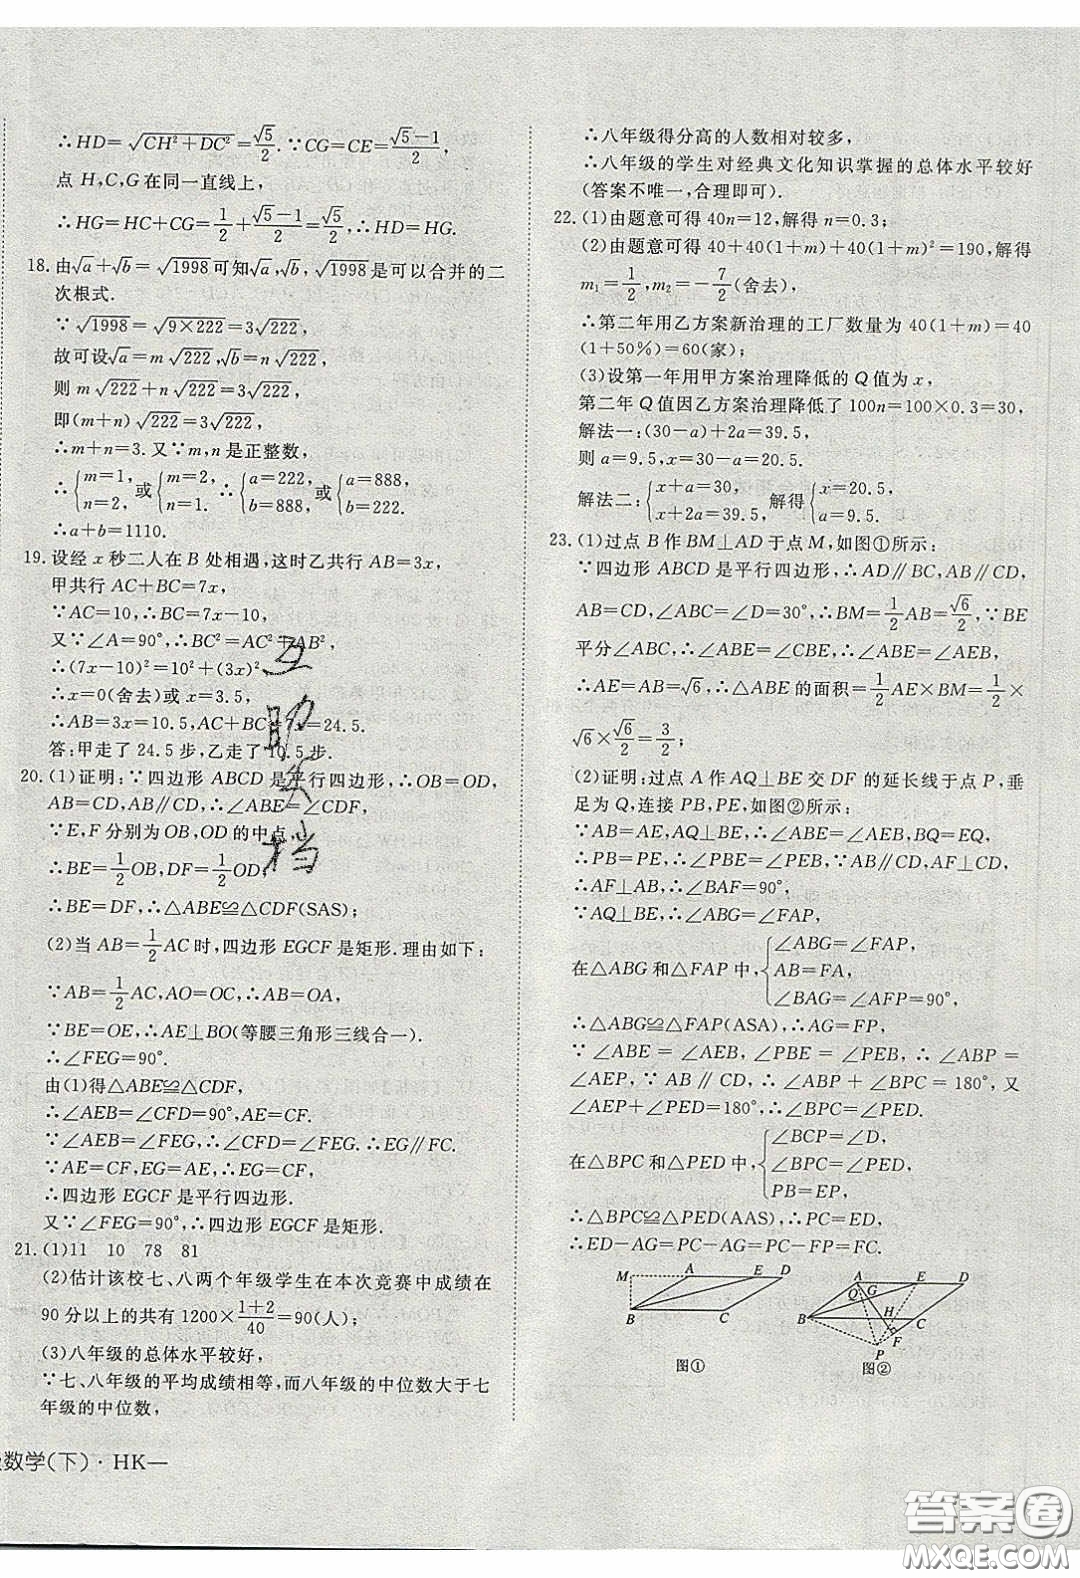 ∴HD=√(CH²+DC²)=√5/2.∵CG=CE=(√5-1)/2,
点 H,C,G 在同一直线上,
∴HG=HC+CG=1/2+(√5-1)/2=√5/2,∴HD=HG.
18.由√a+√b=√1998可知√a,√b,√1998是可以合并的二
次根式.
∵√1998=√(9×222)=3√222,
故可设√a=m√222,√b=n√222,
则 m√222+n√222=3√222,
即(m+n)√222=3√222,
∴m+n=3.又∵m,n是正整数,
∴{m=1, n=2,或{m=2, n=1.∴{a=222, b=888,或{a=888, b=222.
∴a+b=1110.
19.设经 x 秒二人在 B 处相遇,这时乙共行 AB=3x,
甲共行 AC+BC=7x,
∵AC=10,∴BC=7x-10,
又∵∠A=90°,∴BC²=AC²+AB²,
∴(7x-10)²=10²+(3x)²,
∴x=0(舍去)或 x=3.5,
∴AB=3x=10.5,AC+BC=7x=24.5.
答:甲走了 24.5 步,乙走了 10.5 步.
20.(1)证明:∵四边形 ABCD 是平行四边形,∴OB=OD,
AB=CD,AB∥CD,∴∠ABE=∠CDF,
∵E,F 分别为 OB,OD 的中点,
∴BE=1/2OB,DF=1/2OD,
∴BE=DF,∴△ABE≌△CDF(SAS);
(2)当 AB=1/2AC 时,四边形 EGCF 是矩形.理由如下:
∵AB=1/2AC,AO=OC,∴AB=OA,
∵BE=OE,∴AE⊥BO(等腰三角形三线合一).
∴∠FEG=90°.
由(1)得△ABE≌△CDF,
∴∠AEB=∠CFD=90°,AE=CF.
∵∠AEB=∠FEG,∴∠CFD=∠FEG.∴EG∥FC.
∵AE=CF,EG=AE,∴EG=CF.
∴四边形 EGCF 是平行四边形.
又∵∠FEG=90°,∴四边形 EGCF 是矩形.
21.(1)11 10 78 81
(2)估计该校七、八两个年级学生在本次竞赛中成绩在
90 分以上的共有 1200×(1+2)/40=90(人);
(3)八年级的总体水平较好,
∵七、八年级的平均成绩相等,而八年级的中位数大于七
年级的中位数,
数学(下)·HK—
∴八年级得分高的人数相对较多,
∴八年级的学生对经典文化知识掌握的总体水平较好
(答案不唯一,合理即可).
22.(1)由题意可得 40n=12,解得 n=0.3;
(2)由题意可得 40+40(1+m)+40(1+m)²=190,解得
m₁=1/2,m₂=-7/2(舍去),
∴第二年用乙方案新治理的工厂数量为 40(1+m)=40
(1+50%)=60(家);
(3)设第一年用甲方案治理降低的 Q 值为 x,
第二年 Q 值因乙方案治理降低了 100n=100×0.3=30,
解法一:(30-a)+2a=39.5,
则 a=9.5,x=30-a=20.5.
解法二:{x+a=30, x+2a=39.5, 解得{x=20.5, a=9.5.
23.(1)过点 B 作 BM⊥AD 于点 M,如图①所示:
∵四边形 ABCD 是平行四边形,∴AD∥BC,AB∥CD,
AB=CD,∠ABC=∠D=30°,∴BM=1/2AB=√6/2,∵BE
平分∠ABC,∴∠ABE=∠CBE,∴∠ABE=∠AEB,
∴AE=AB=√6,∴△ABE 的面积=1/2AE×BM=1/2×
√6×√6/2=3/2;
(2)证明:过点 A 作 AQ⊥BE 交 DF 的延长线于点 P,垂
足为 Q,连接 PB,PE,如图②所示:
∵AB=AE,AQ⊥BE,∴∠ABE=∠AEB,BQ=EQ,
∴PB=PE,∴∠PBE=∠PEB,∵AB∥CD,AF⊥CD,
∴AF⊥AB,∴∠BAF=90°,
∵AQ⊥BE,∴∠ABG=∠FAP,
在△ABG 和△FAP 中,{∠ABG=∠FAP, AB=FA, ∠BAG=∠AFP=90°,
∴△ABG≌△FAP(ASA),∴AG=FP,
∵∠ABE=∠AEB,∠PBE=∠PEB,∴∠ABP=
∠AEP,∵AB∥CD,∴∠ABP+∠BPC=180°,又
∠AEP+∠PED=180°,∴∠BPC=∠PED.
在△BPC 和△PED 中,{∠BCP=∠D, ∠BPC=∠PED, PB=EP,
∴△BPC≌△PED(AAS),∴PC=ED,
∴ED-AG=PC-AG=PC-FP=FC.
M A E D
B C
图①
A E D
Q G
B H C
F
P
图②
互
助
文
档
答案圈
MXQE.COM